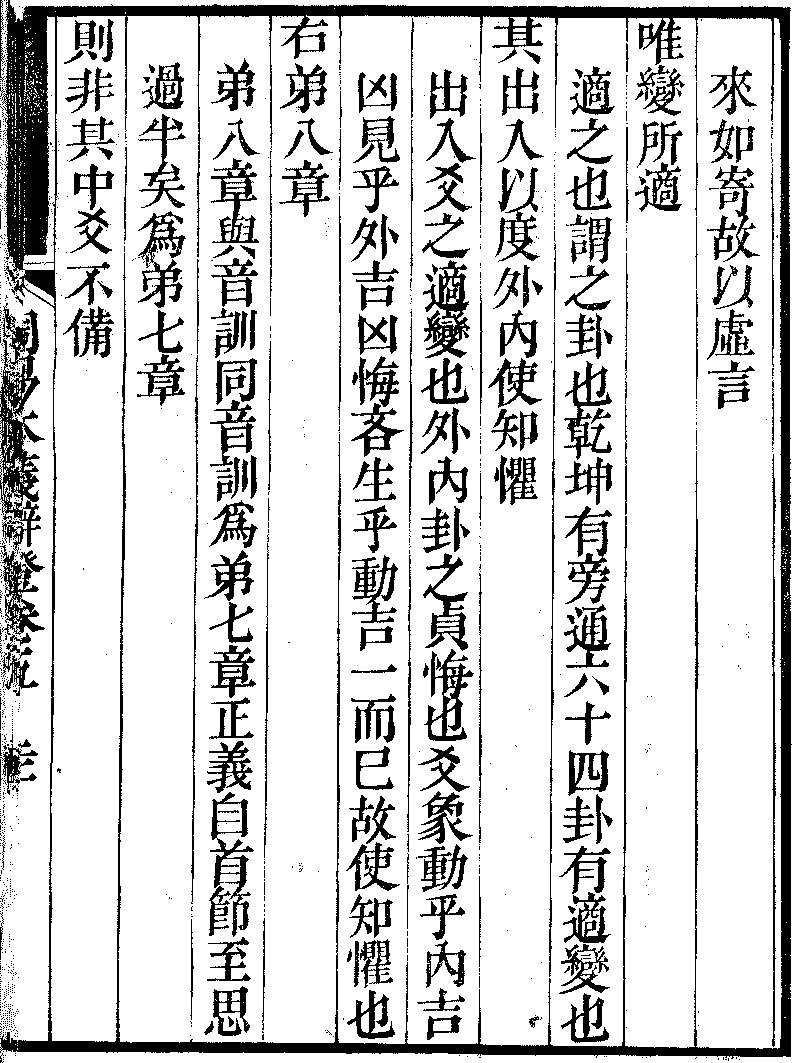 來如寄故以虛言
唯變所適
適之也謂之卦也乾坤有旁通六十四卦有適變也
其出入以度外內使知懼
出入爻之適變也外內卦之貞悔也爻象動乎內吉
凶見乎外吉凶悔吝生乎動吉一而巳故使知懼也
右弟八章
弟八章與音訓同音訓爲弟七章正義自首節至思
過半矣爲弟七章
則非其中爻不備
周易本義辨證卷五